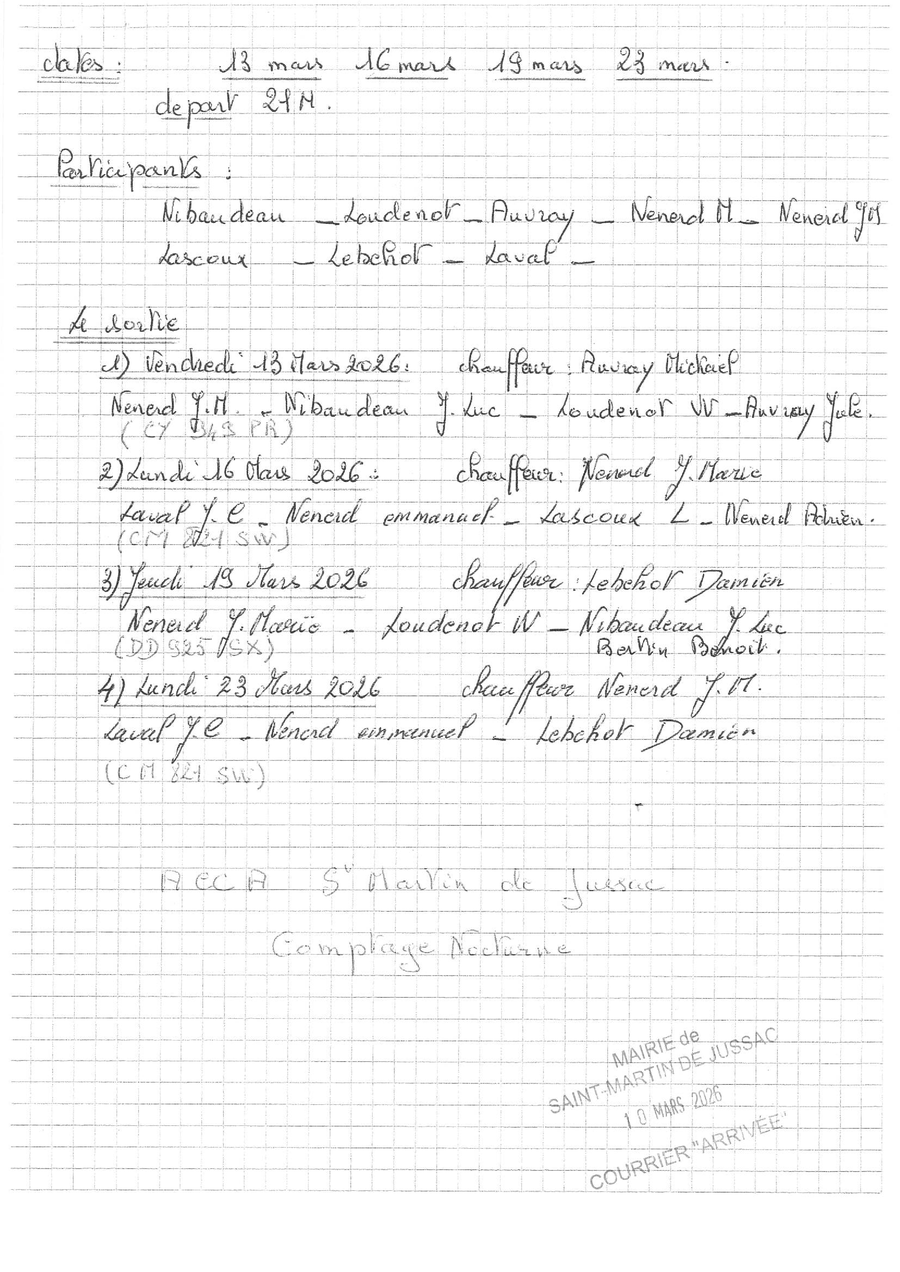 dates : 13 mars 16 mars 19 mars 23 mars.
depart 21H.
Participants :
Nibaudeau – Loudenot – Auvray – Nenerd M – Nenerd JM
Lascoux – Lebchot – Laval –
Le sortie
1) Vendredi 13 Mars 2026 : chauffeur : Auvray Mickael
Nenerd J.M. – Nibaudeau J. Luc – Loudenot W – Auvray Jule.
(CY 343 PR)
2) Lundi 16 Mars 2026 : chauffeur : Nenerd J. Marie
Laval J.C – Nenerd emmanuel – Lascoux L – Nenerd Adrien.
(CM 821 SW)
3) Jeudi 19 Mars 2026 chauffeur : Lebchot Damien
Nenerd J. Marie – Loudenot W – Nibaudeau J. Luc
(DD 925 SX) Bertin Benoit.
4) Lundi 23 Mars 2026 chauffeur Nenerd J.M.
Laval J.C – Nenerd emmanuel – Lebchot Damien
(CM 821 SW)
ACCA St Martin de Jussac
Comptage Nocturne
MAIRIE de
SAINT-MARTIN DE JUSSAC
10 MARS 2026
COURRIER "ARRIVÉE"